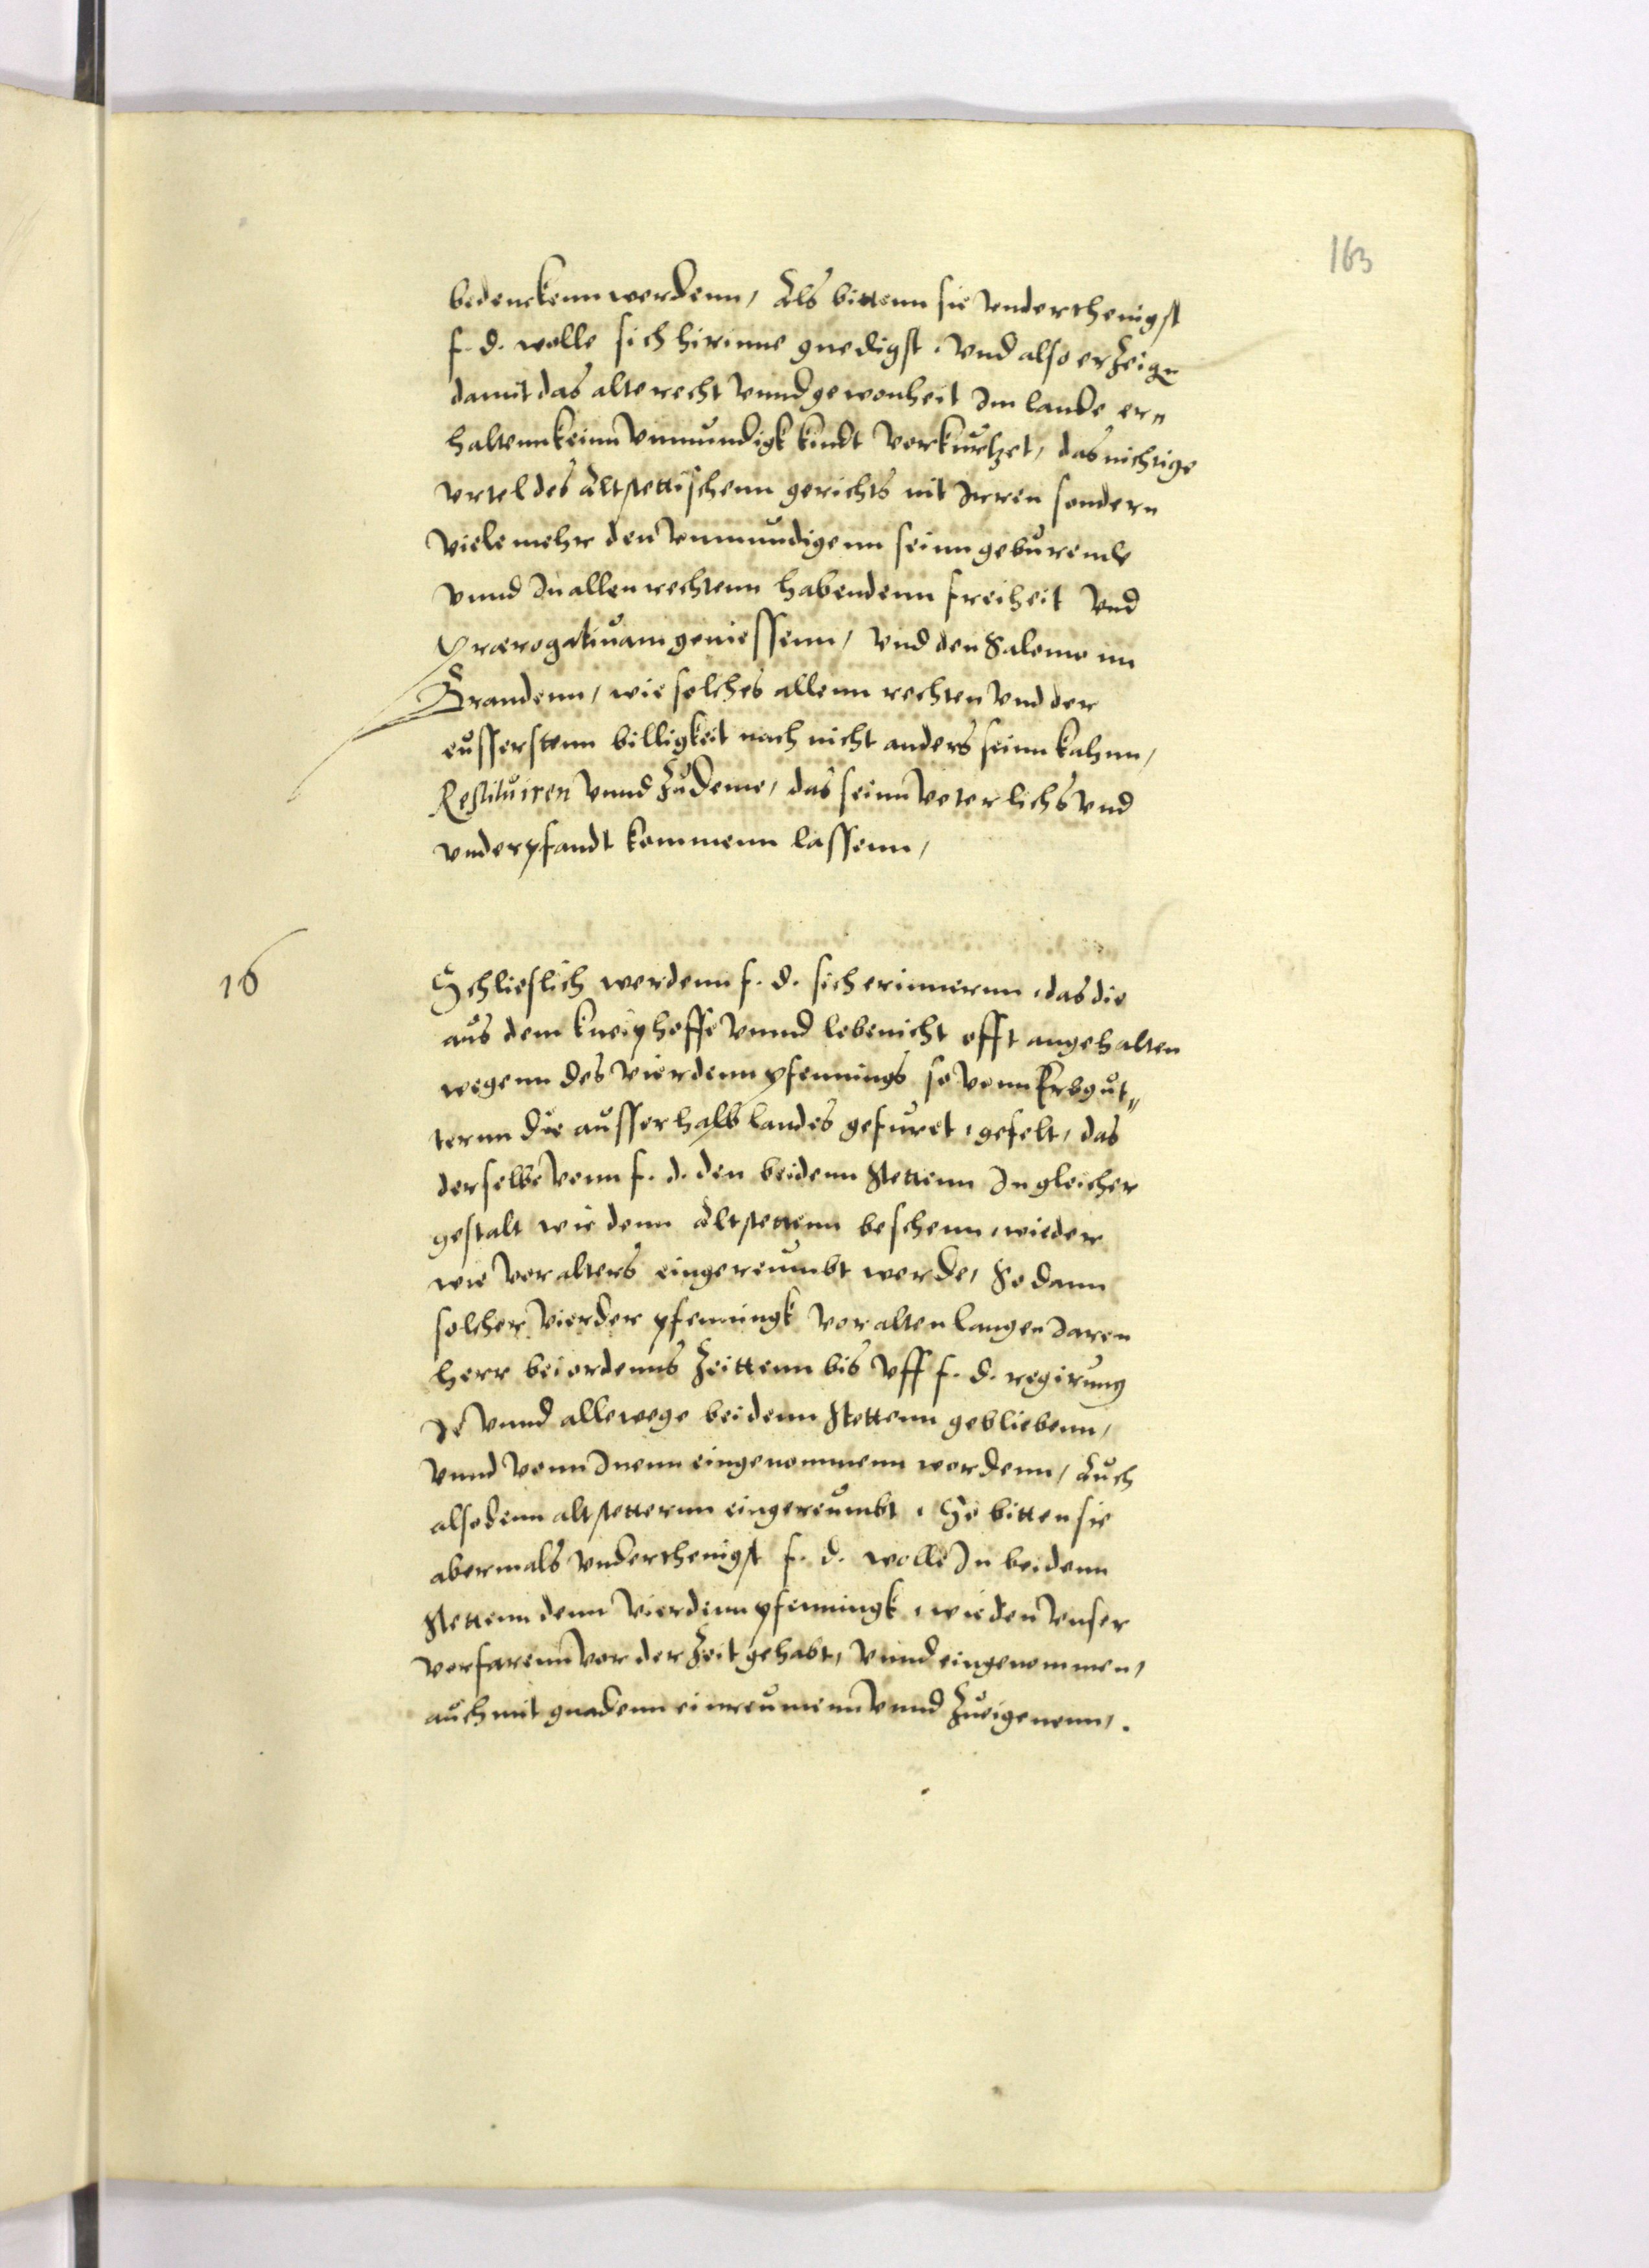 163
bedenckenn werdenn, Als bittenn sie vnderthenigst
f. d. wolle sich hirinne gnedigst. vnd also erzeigen
damit das alte recht vnnd gewonheit Im lande er„
haltenn keinn vnmundigk kindt vorkurtzet, das nichtige
vrtel des Altstettischenn gerichts nit Irren sondern
viele mehr den vnmundigenn seinn geburende
vnnd In allen rechtenn habendenn freiheit vnd
Prærogatiuam geniessenn, vnd den Salomo im
Brandenn, wie solches allenn rechten vnd der
eusserstenn billigkeit nach nicht anders seinn kahnn,
Restituiren vnnd zudeme, das seinn veterlichs vnd
vnderpfandt kommenn lassenn,
16
Schlieslich werdenn f. d. sich erinnernn, das die
aus dem kneiphoffe vnnd lebenicht offt angehalten
wegenn des vierdenn pfennings so vonn Erbgut„
ternn die ausserhalb landes gefuret, gefelt, das
derselbe vonn f. d. den beidenn Stettenn In gleicher
gestalt wie denn Altstettenn beschenn, wieder
wie vor alters eingereumbt werde, So dann
solcher vierder pfenningk vor alten langen Jaren
herr bei ordenns zeittenn bis vff f. d. regirung
Je vnnd allewege bei denn Stettenn gebliebenn,
vnnd vonn Inenn eingenommenn wordenn, Auch
also denn altstetternn eingereumbt, So bitten sie
abermals vnderthenigst f. d. wolle In beidenn
Stettenn denn vierdenn pfenningk, wie den vnser
vorfarenn vor der zeit gehabt, vnnd eingenommen,
auch mit gnadenn einreumenn vnnd zueigenenn,.